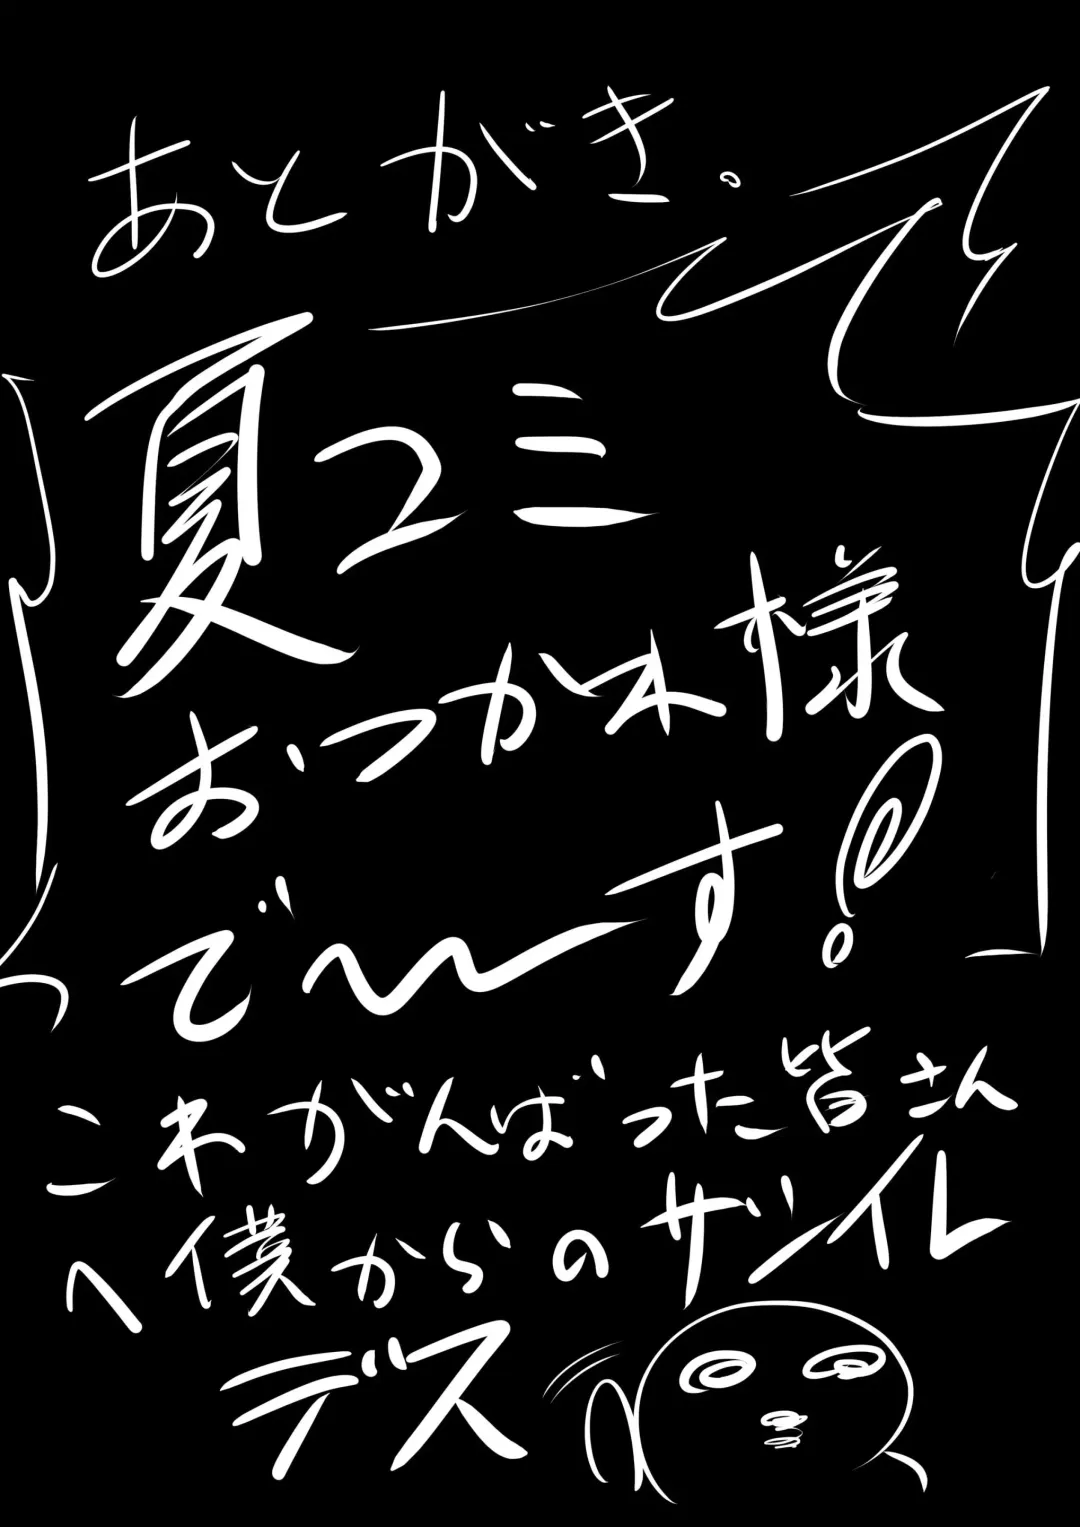 あとがき。
夏コミ
おつかれ様
で〜す！
これがんばった皆さん
へ僕からのサンイレ
デス